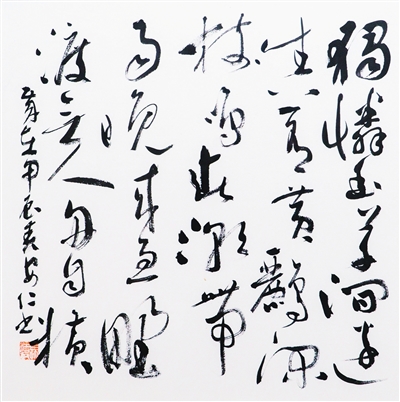 獨憐幽草澗邊
生上有黃鸝深
樹鳴春潮帶
雨晚來急野
渡無人舟自橫
歲在甲辰春安仁书